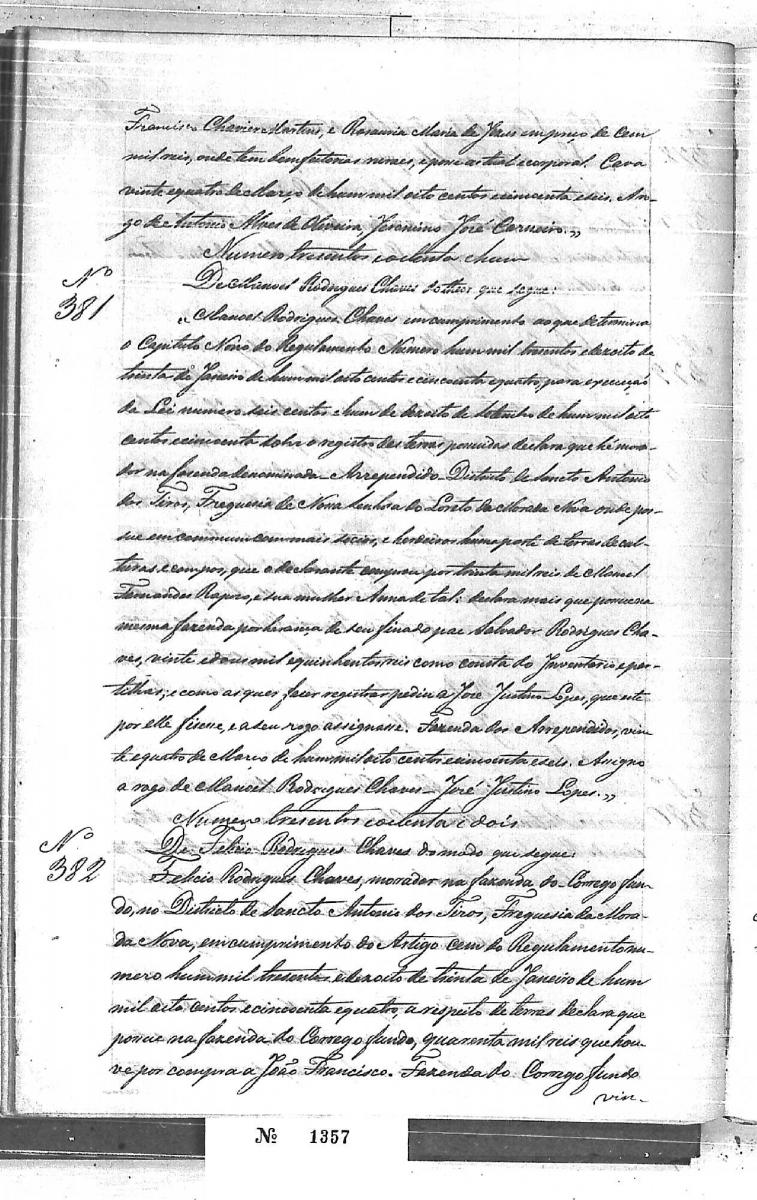 Francisco Chavier Martins, e Rosauria Maria de Jesus em preço de Cem
mil reis, onde tem bemfeitorias ruraes, e posse actual e corporal. Cava
vinte e quatro de Março de hum mil oito centos e cincoenta e seis. Arro-
go de Antonio Alves de Oliveira, Jeronimo José Carneiro. „
Numero tresentos e oitenta e hum
Nº 381
De Manoel Rodrigues Chaves do theor que segue:
„Manoel Rodrigues Chaves em cumprimento ao que determina
o Capitulo Nono do Regulamento Numero hum mil tresentos e dezoito de
trinta de Janeiro de hum mil oito centos e cincoenta e quatro, para execução
da Lei numero seis centos e hum de dezoito de setembro de hum mil oito
centos e cincoenta sobre o registro das terras possuidas declara que hé mora-
dor na fasenda denominada - Arrependido - Districto de Sancto Antonio
dos Tiros, Freguesia de Nossa Senhora do Loreto da Morada Nova onde pos-
sue em commum com mais socios, e herdeiros huma parte de terras de cul-
turas, e campos, que o declarante comprou por trinta mil reis de Manoel
Fernandes Raposo, e sua mulher Anna de tal: declara mais que possue na
mesma fazenda por herança de seu finado pae Salvador Rodrigues Cha-
ves, vinte e dous mil e quinhentos reis como consta do Inventario e par-
tilhas; e como as quer fazer registrar pediu a José Justino Lopes, que este
por elle fisesse, e a seu rogo assignasse. Fazenda dos Arrependidos, vin-
te e quatro de Março de hum mil oito centos e cincoenta e seis. Assigno
a rogo de Manoel Rodrigues Chaves - José Justino Lopes. „
Numero tresentos e oitenta e dois
Nº 382
De Felicio Rodrigues Chaves do modo que segue:
Felicio Rodrigues Chaves, morador na fazenda do Corrego fun-
do, no Districto de Sancto Antonio dos Tiros, Freguesia da Mora-
da Nova, em cumprimento do Artigo cem do Regulamento nu-
mero hum mil tresentos e dezoito de trinta de Janeiro de hum
mil oito centos e cincoenta e quatro, a respeito de terras declara que
possue na fazenda do Corrego fundo, quarenta mil reis que hou-
ve por compra a João Francisco. Fazenda do Corrego fundo
vin-
Nº 1357